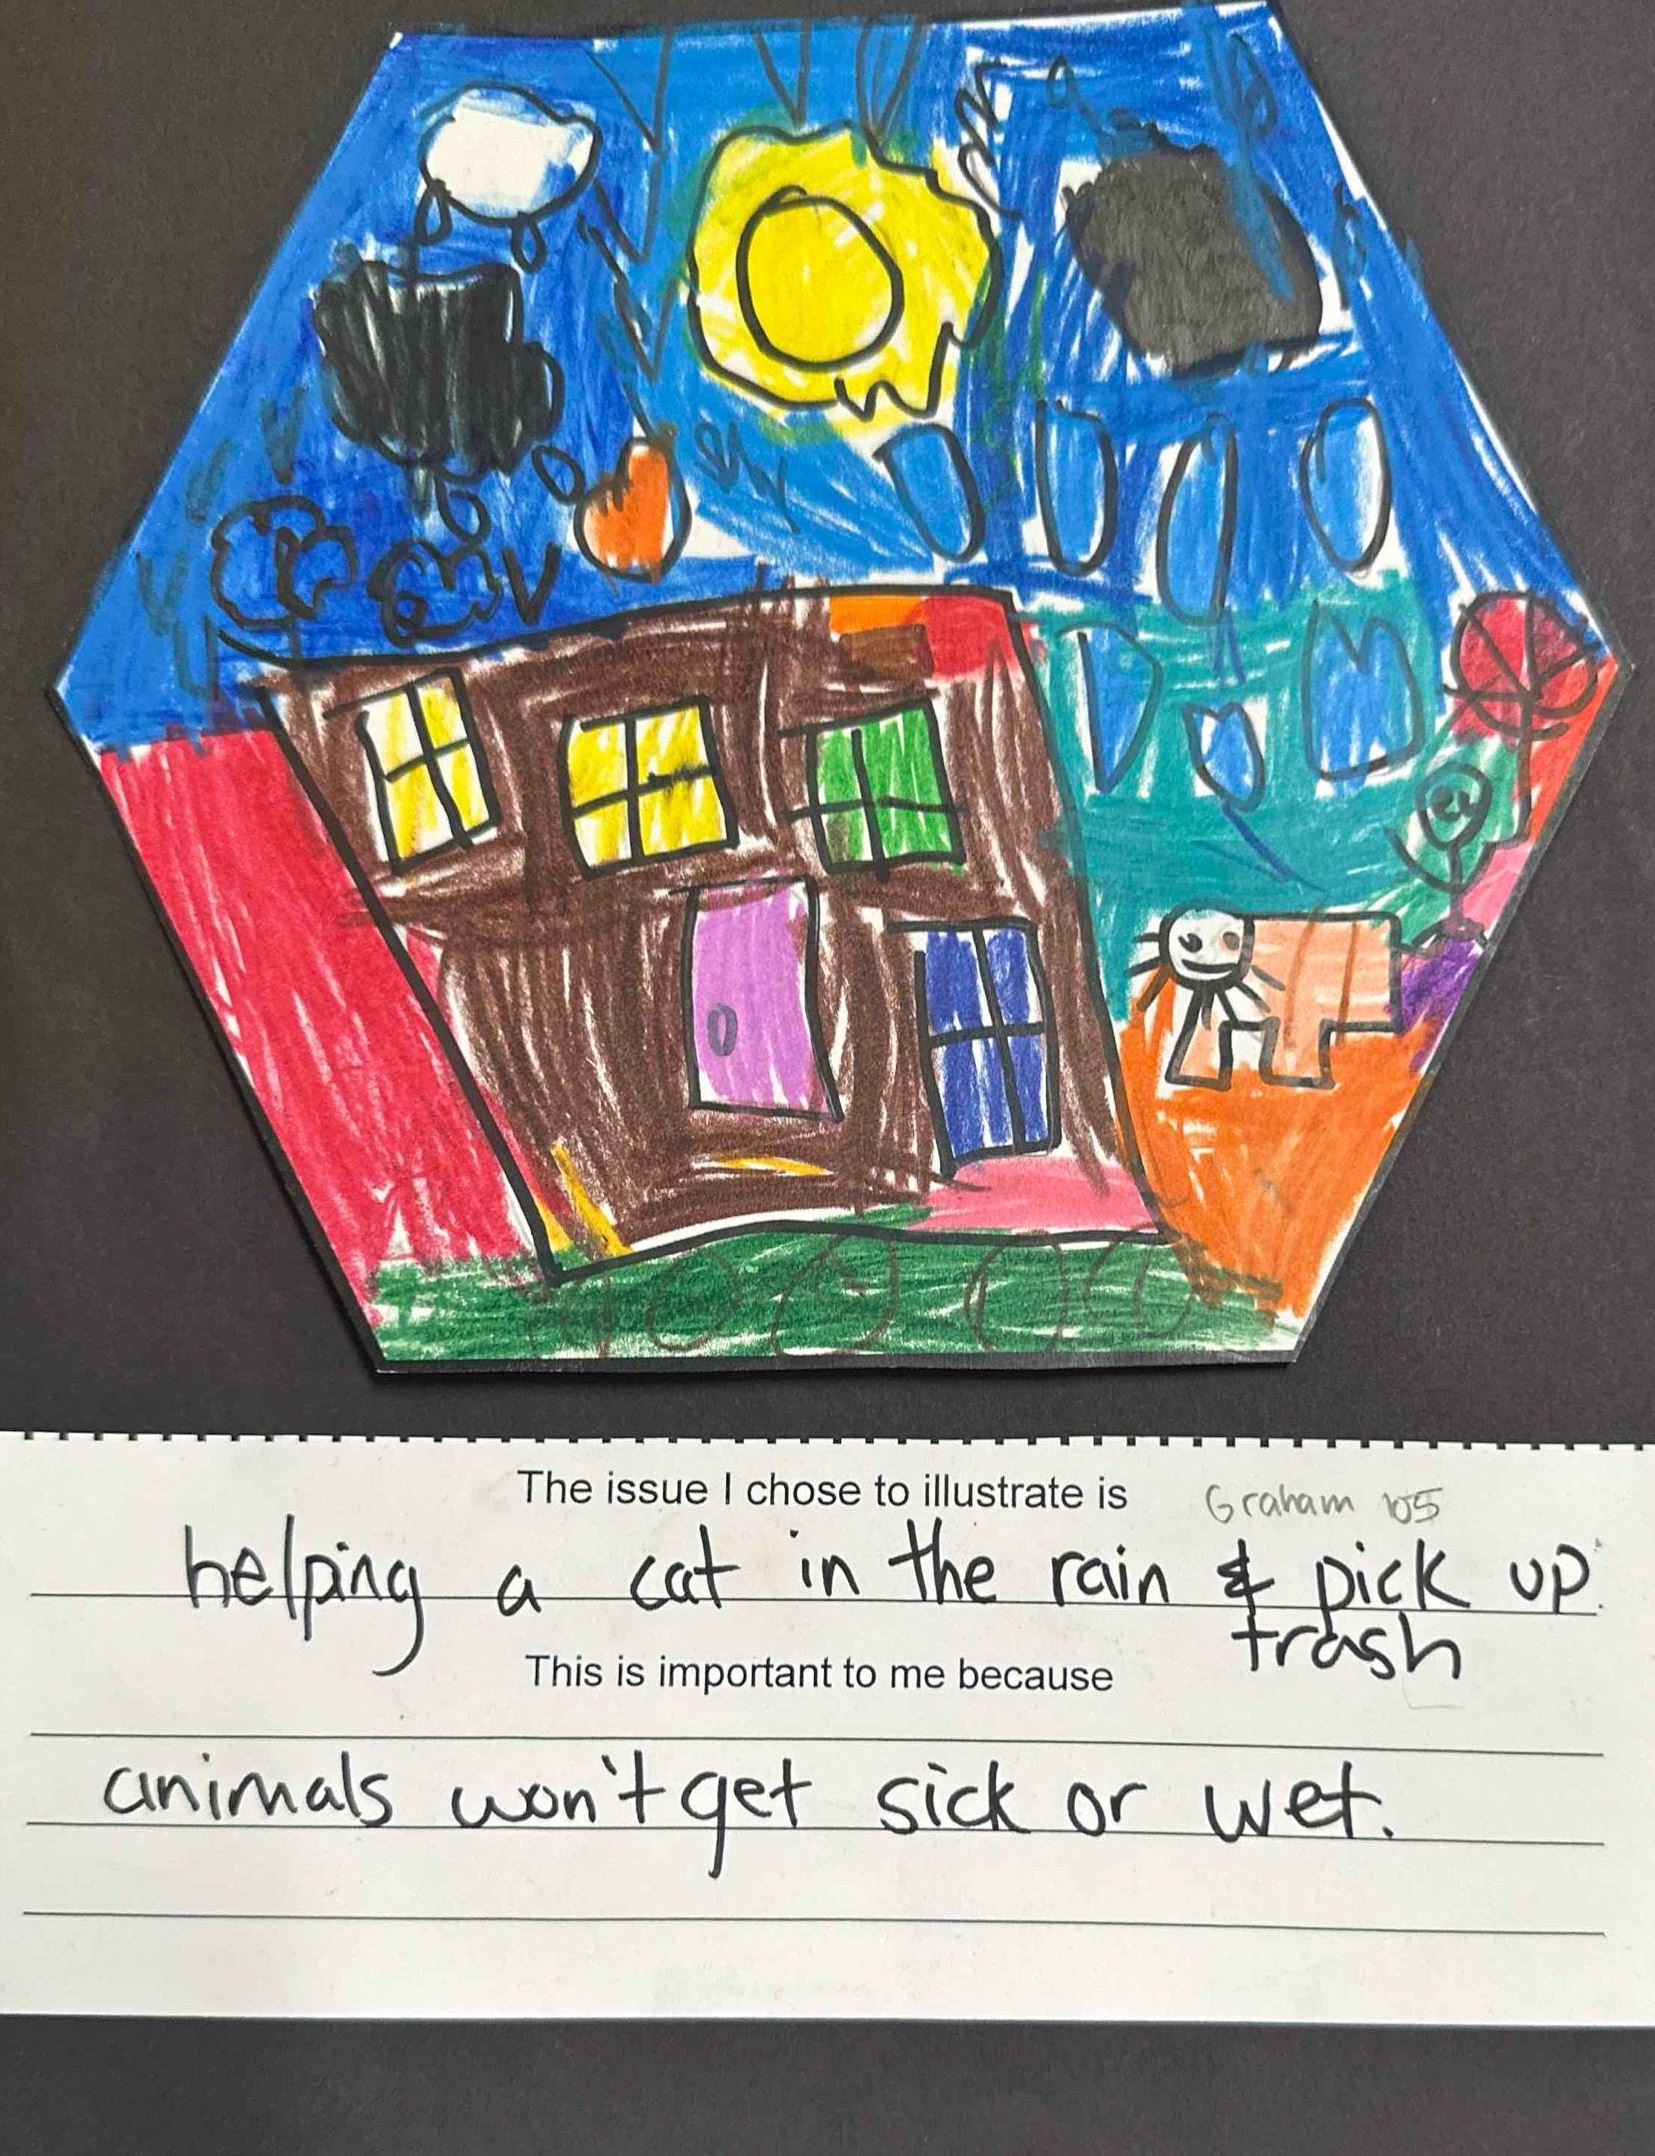 The issue I chose to illustrate is Graham 105
helping a cat in the rain & pick up
trash
This is important to me because
animals won't get sick or wet.